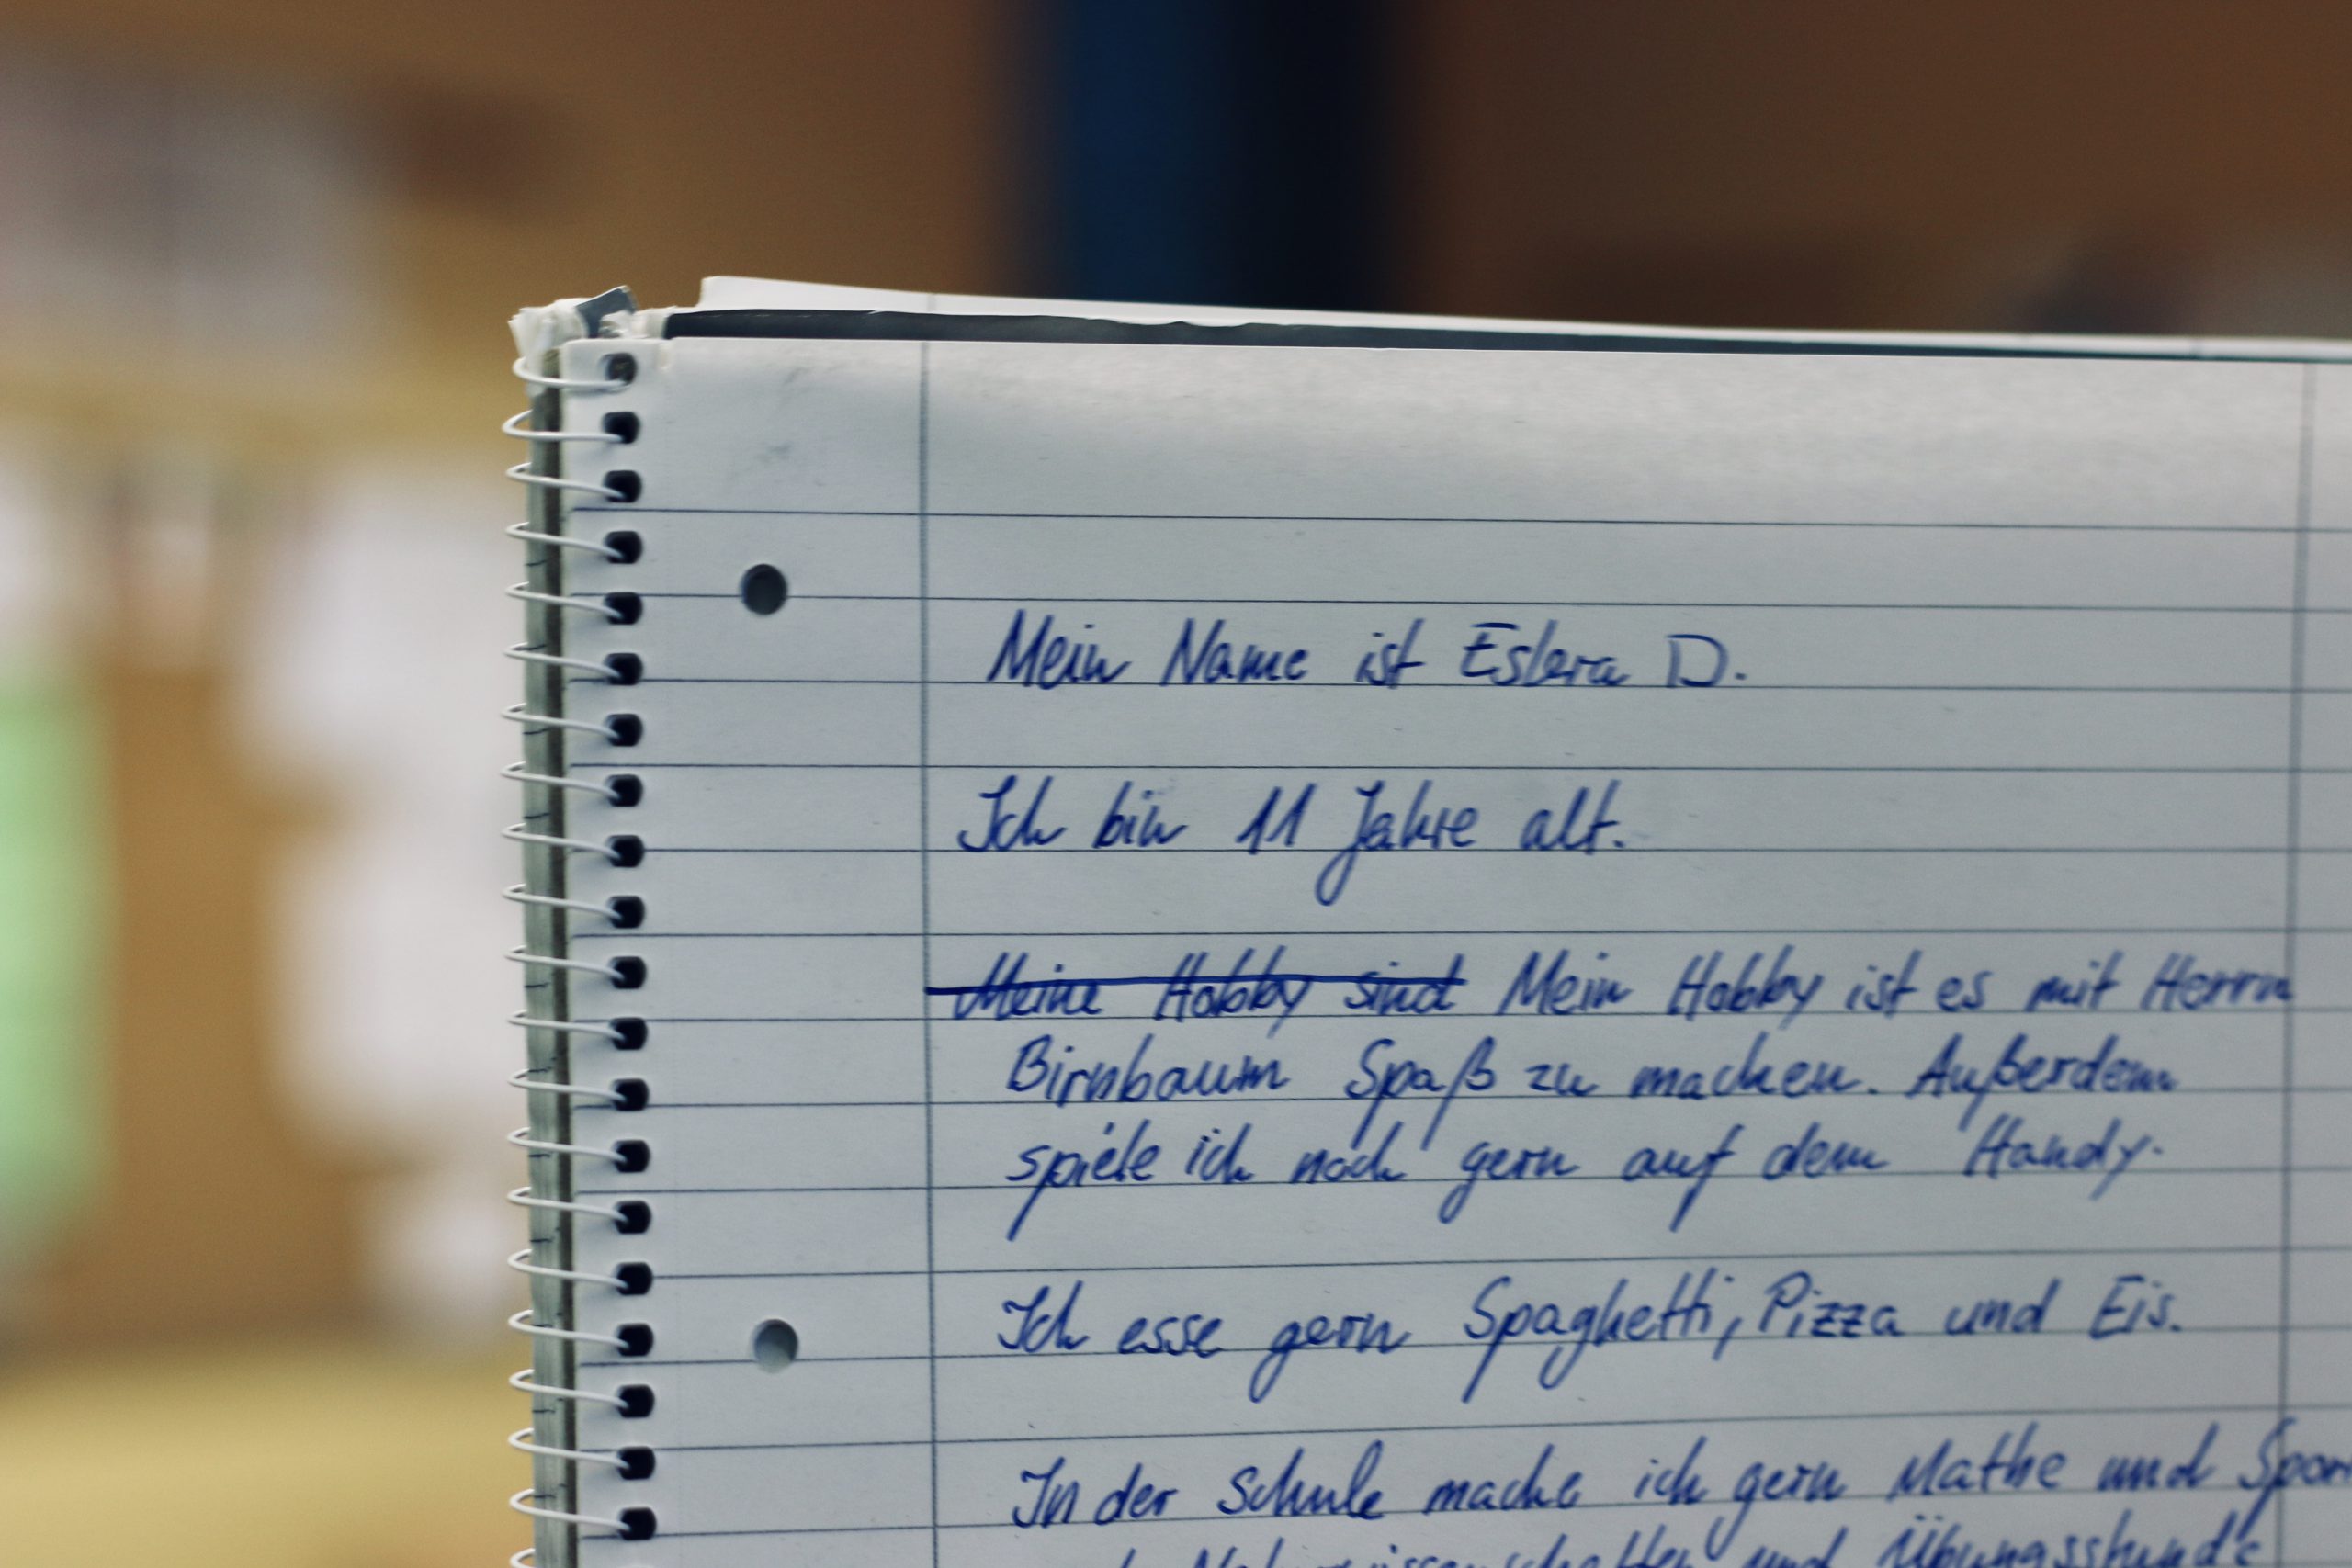 Mein Name ist Eslera D.
Ich bin 11 Jahre alt.
Meine Hobby sind Mein Hobby ist es mit Herrn
Birnbaum Spaß zu machen. Außerdem
spiele ich noch gern auf dem Handy.
Ich esse gern Spaghetti, Pizza und Eis.
In der Schule mache ich gern Mathe und Sport
Naturwissenschaften und Übungsstunde